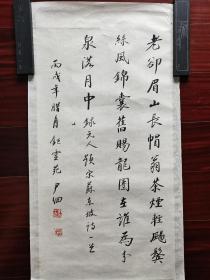 老卻眉山長帽翁茶煙輕颺鬢
絲風錦囊舊賜龍團在誰為分
泉落月中 錄元人題宋蘇東坡詩一首
丙戌年臘月